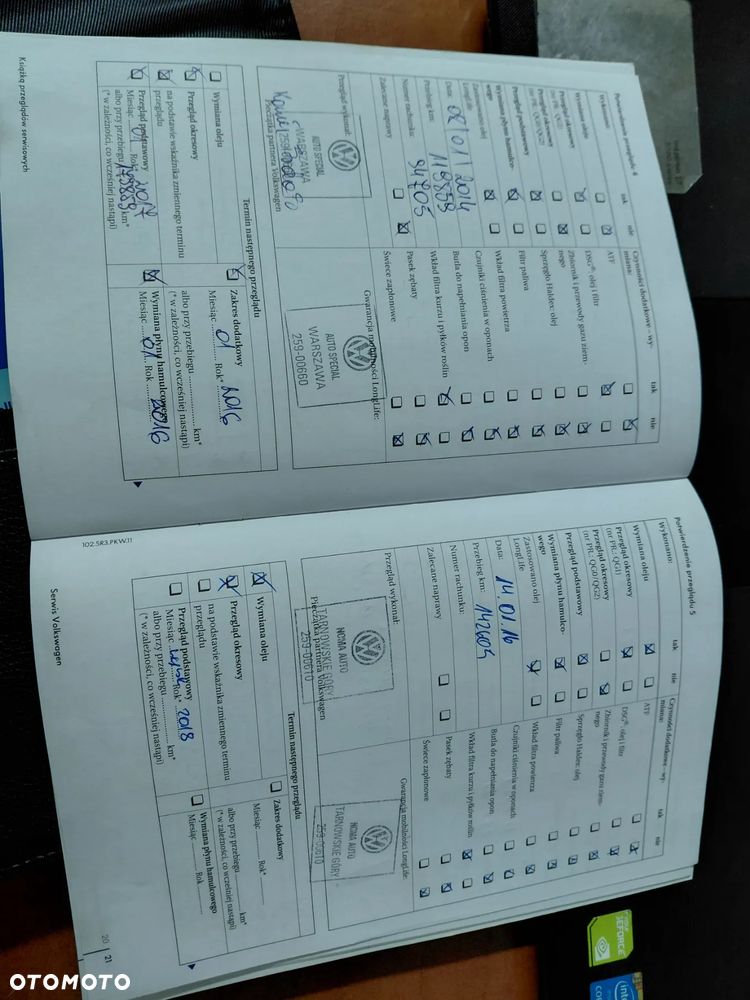 Potwierdzenie przeglądu 4
Wykonano:
tak
nie
Wymiana oleju
Przegląd okresowy
(nr PR.: QG1)
Przegląd okresowy
(nr PR.: QG0/QG2)
Przegląd podstawowy
Wymiana płynu hamulco-
wego
Zastosowano olej
LongLife
Data:
Przebieg km: 119859
Numer rachunku: 94705
Zalecane naprawy
Czynności dodatkowe – wy-
miana:
tak
nie
ATF
DSG®: olej i filtr
Zbiornik i przewody gazu ziem-
nego
Sprzęgło Haldex: olej
Filtr paliwa
Wkład filtra powietrza
Czujniki ciśnienia w oponach
Butla do napełniania opon
Wkład filtra kurzu i pyłków roślin
Pasek zębaty
Świece zapłonowe
Przegląd wykonał:
AUTO SPECIAL
WARSZAWA
Pieczątka partnera Volkswagen
Gwarancja mobilności LongLife:
AUTO SPECIAL
WARSZAWA
259-00660
Termin następnego przeglądu
Wymiana oleju
Przegląd okresowy
na podstawie wskaźnika zmiennego terminu
przeglądu
Przegląd podstawowy
Miesiąc 01 Rok* 2017
albo przy przebiegu km*
(* w zależności, co wcześniej nastąpi)
Zakres dodatkowy
Miesiąc 01 Rok* 2016
albo przy przebiegu km*
(* w zależności, co wcześniej nastąpi)
Wymiana płynu hamulcowego
Miesiąc 01 Rok 2016
Książka przeglądów serwisowych
102.5R3.PKW.11
Potwierdzenie przeglądu 5
Wykonano:
tak
nie
Wymiana oleju
Przegląd okresowy
(nr PR.: QG1)
Przegląd okresowy
(nr PR.: QG0/QG2)
Przegląd podstawowy
Wymiana płynu hamulco-
wego
Zastosowano olej
LongLife
Data: 14.01.16
Przebieg km: 142604
Numer rachunku:
Zalecane naprawy
Czynności dodatkowe – wy-
miana:
tak
nie
ATF
DSG®: olej i filtr
Zbiornik i przewody gazu ziem-
nego
Sprzęgło Haldex: olej
Filtr paliwa
Wkład filtra powietrza
Czujniki ciśnienia w oponach
Butla do napełniania opon
Wkład filtra kurzu i pyłków roślin
Pasek zębaty
Świece zapłonowe
Przegląd wykonał:
NOMA AUTO
TARNOWSKIE GÓRY
259-00610
Pieczątka partnera Volkswagen
Gwarancja mobilności LongLife:
NOMA AUTO
TARNOWSKIE GÓRY
259-00610
Termin następnego przeglądu
Wymiana oleju
Przegląd okresowy
na podstawie wskaźnika zmiennego terminu
przeglądu
Przegląd podstawowy
Miesiąc Rok* 2018
albo przy przebiegu km*
(* w zależności, co wcześniej nastąpi)
Zakres dodatkowy
Miesiąc Rok*
albo przy przebiegu km*
(* w zależności, co wcześniej nastąpi)
Wymiana płynu hamulcowego
Miesiąc Rok
Serwis Volkswagen
20
21
GEFORCE
intel
OTOMOTO